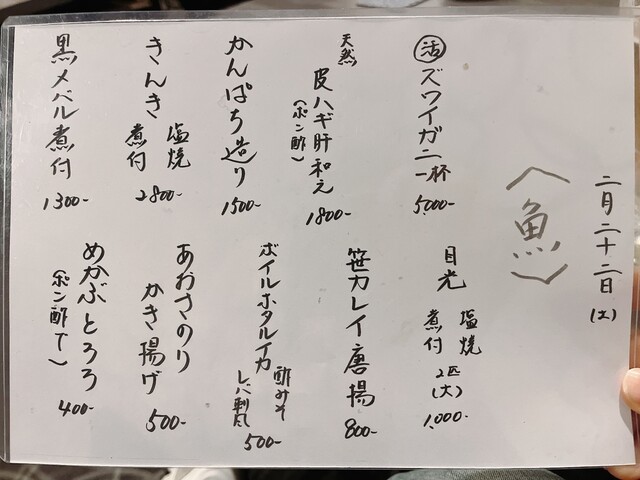 二月二十二日(土)
〈魚〉
活ズワイガニ一杯
5,000-
天然
皮ハギ肝和え
(ポン酢)
1800-
かんぱち造り
1500-
きんき
塩焼
煮付
2800-
黒メバル煮付
1300-
目光
塩焼
煮付
2匹
(大)
1,000-
笹カレイ唐揚
800-
ボイルホタルイカ
酢みそ
レバ刺風
500-
あおさのり
かき揚げ
500-
めかぶとろろ
(ポン酢て)
400-